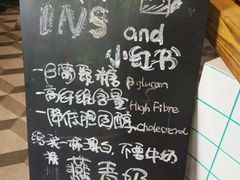 INS and
小红书
一β葡聚糖 β glucan
一高纤维含量 High Fibre
一降低胆固醇 cholesterol
给我一杯 不要牛奶
燕麦奶